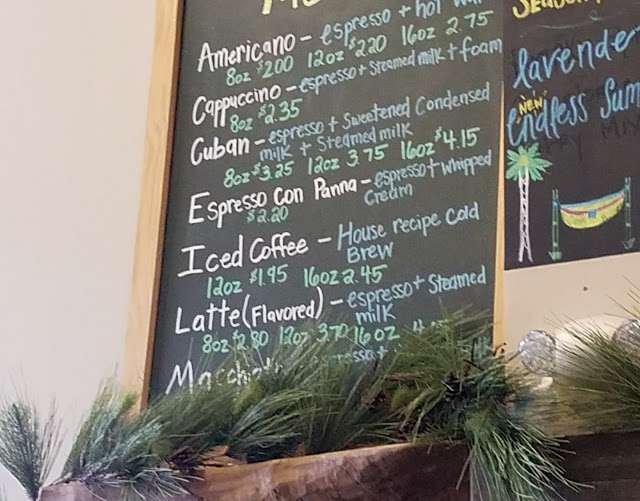 Americano - espresso + hot
8oz $200 12oz $220 16oz 2.75
Cappuccino - espresso + Steamed milk + foam
8oz $2.35
Cuban - espresso + Sweetened Condensed
milk + Steamed milk
8oz $3.25 12oz 3.75 16oz $4.15
Espresso Con Panna - espresso + whipped
Cream
$2.20
Iced Coffee - House recipe cold
Brew
12oz $1.95 16oz 2.45
Latte (Flavored) - espresso + Steamed
milk
8oz $2.80 12oz 3.70 16oz
lavender
NEW
Endless Sum